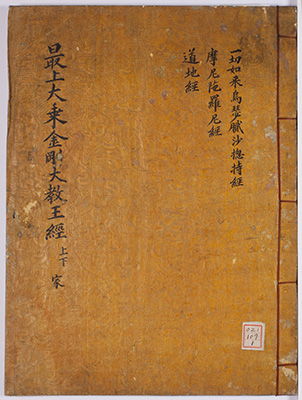 一切如來烏瑟膩沙㧾持經
摩尼陁羅尼經
道地經
最上大乘金剛大教王經 上下 家